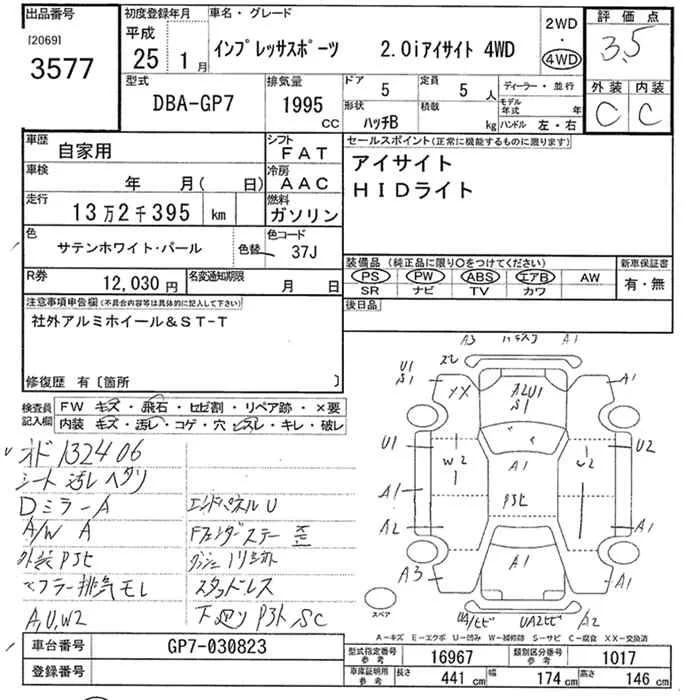 出品番号
[2069]
3577
初度登録年月
平成
25 1月
車名・グレード
インプレッサスポーツ 2.0iアイサイト 4WD
2WD
・
4WD
評価点
3.5
外装 内装
C C
型式
DBA-GP7
排気量
1995
CC
ドア 5
定員 5人
形状 ハッチB
積載 kg
ディーラー・並行
モデル年式 年
ハンドル 左・右
車歴
自家用
シフト
FAT
車検
年 月( 日)
冷房
AAC
走行
13万2千395 km
燃料
ガソリン
色
サテンホワイト・パール
色替
色コード
37J
R券
12,030円
名変通知期限
月 日
セールスポイント(正常に機能するものに限ります)
アイサイト
HIDライト
装備品 (純正品に限り〇をつけてください)
PS PW ABS エアB AW
SR ナビ TV カワ
新車保証書
有・無
後日品
注意事項申告欄(不具合内容等は具体的に記入して下さい)
社外アルミホイール&ST-T
修復歴 有〔箇所
検査員記入欄
FW キズ・飛石・ヒビ割・リペア跡・×要
内装 キズ・汚レ・コゲ・穴・スレ・キレ・破レ
オド132406
シート汚レヘタリ
DミラーA
A/W A
エンドパネルU
Fフェンダーステー歪
外装Pヌヒ
マフラー排気モレ
スタッドレス
A,U,W2
下廻りPヌト,SC
A3 A1
スレ
U1
S1
XX
A2U1
S1
A1
U1
W2
A1
U2
U2
A1
Pヌヒ
A2
A1
A3
A1
A1
スペア
UA1ヒビ UA2ヒビ A2
A-キズ E-エクボ U-凹み W-補修跡 S-サビ C-腐食 XX-交換済
車台番号
GP7-030823
登録番号
型式指定番号
参考
16967
類別区分番号
参考
1017
車庫証明用
参考
長さ 441cm 幅 174cm 高さ 146cm